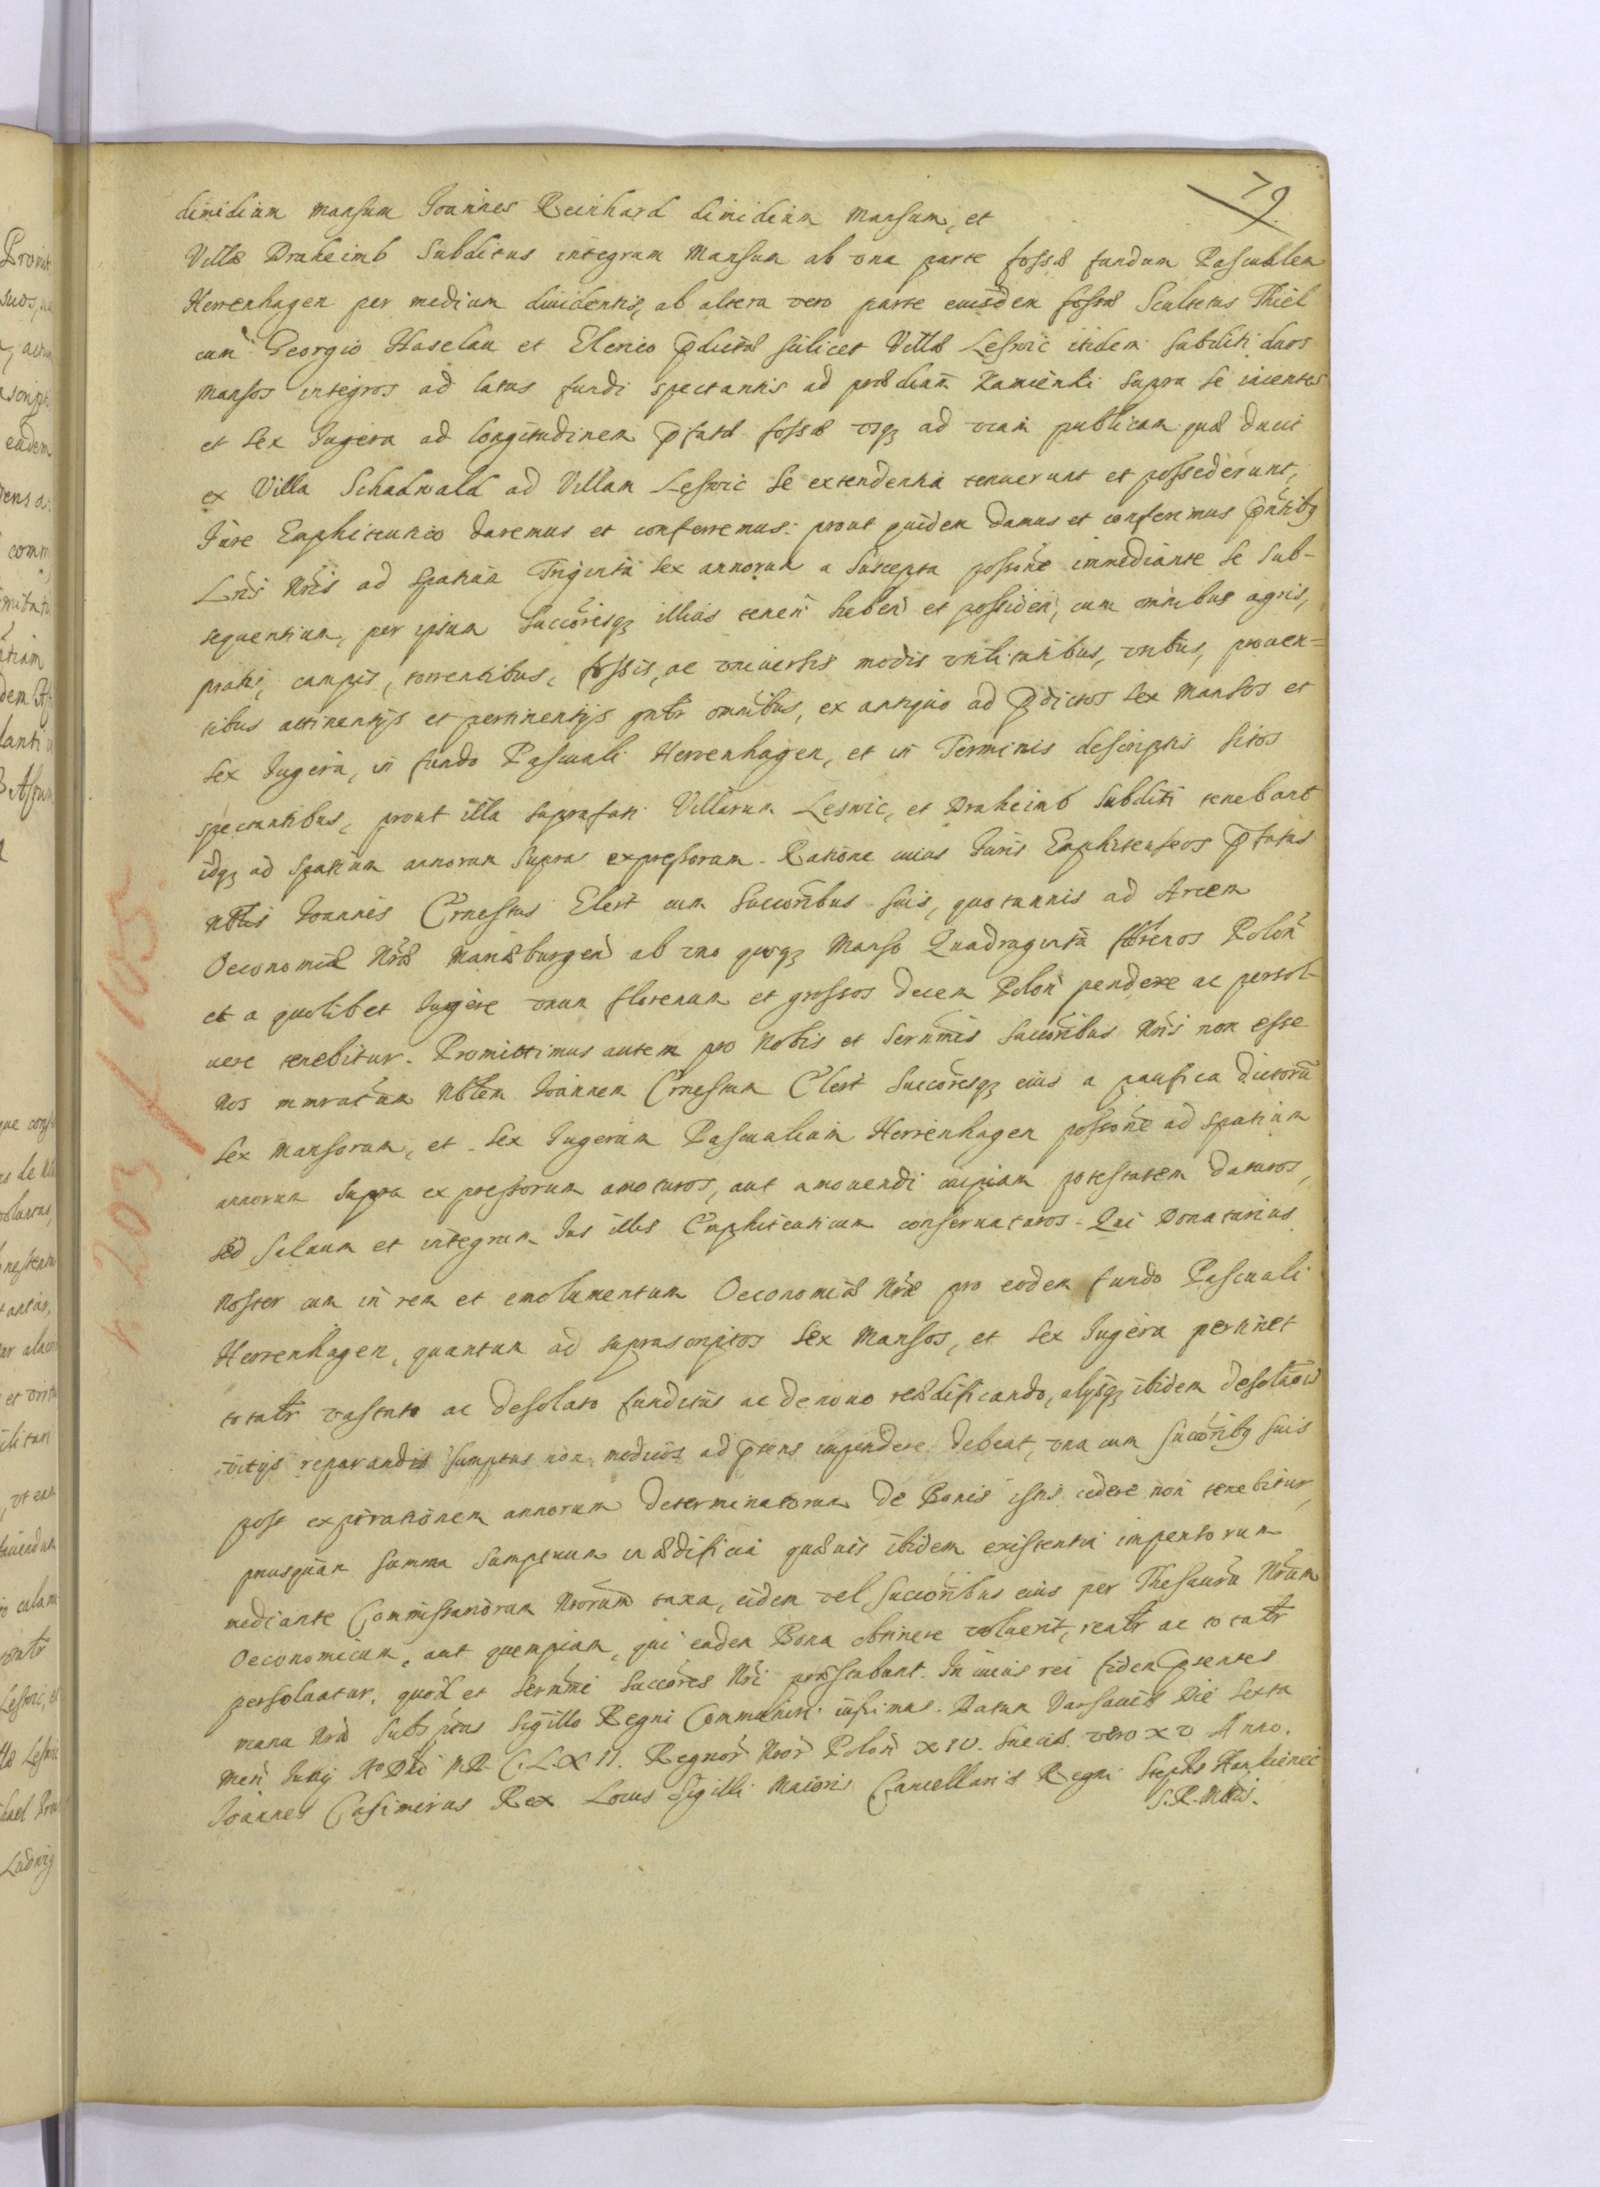 79
dimidium mansum Joannes Reinhard dimidium mansum, et
Villæ Draheimb Subditus integrum Mansum ab vna parte fossæ fundum Pascualem
Herrenhagen per medium diuidentis, ab altera vero parte eiusdem fossæ Scultetus Thiel
cum Georgio Haselau et Elerico pdictæ scilicet Villæ Leswic itidem subditi duos
Mansos integros ad latus fundi spectantis ad prædium Kamienki supra se iacentes
et sex Jugera ad longitudinem pfatæ fossæ vsq ad viam publicam quæ ducit
ex Villa Schadwald ad Villam Leswic se extendentia tenuerunt et possederunt,
Jure Emphiteutico daremus et conferremus: prout quidem damus et conferimus pntibq
Lris Nris ad spatium Triginta sex annorum a suscepta possione immediante se sub-
sequentium, per ipsum Succoresq illius tenen haben et possiden, cum omnibus agris,
pratis, campis, torrentibus, fossis, ac vniuersis modis vtilitatibus, vsibus, prouen-
tibus attinentijs et pertinentijs gntr omnibus, ex antiquo ad pdictos sex Mansos et
sex Jugera, in fundo Pascuali Herrenhagen, et in Terminis descriptis sitos
spectantibus, prout illa suprafati Villarum Leswic, et Draheimb Subditi tenebant
idq ad spatium annorum supra expressorum. Ratione cuius Juris Emphiteuseos pfatus
Nblis Joannes Ernestus Elert cum Succoribus suis, quotannis ad Arcem
Oeconomiæ Nræ Mariæburgen ab vno quoq Manso Quadraginta florenos Polon
et a quolibet Jugere vnum florenum et grossos decem Polon pendere ac persol-
uere tenebitur. Promittimus autem pro Nobis et Sernmis Succoribus Nris non esse
Nos mmratum Nblem Joannem Ernestum Elert Succoresq eius a paufica dictorum
sex Mansorum, et sex Jugerum Pascualium Herrenhagen possione ad spatium
annorum supra expressorum amoturos, aut amouendi cuipiam potestatem daturos,
sed saluum et integrum Jus illis Emphiteuticum conseruaturos. Qui Donatarius
Noster cum in rem et emolumentum Oeconomiæ Nræ pro eodem fundo Pascuali
Herrenhagen, quantum ad suprascriptos sex Mansos, et sex Jugera pertinet
totalr vastato ac desolato funditus ac denouo reædificando, alijsq ibidem desolaois
vitijs reparandis sumptus non modicos ad pñs impendere debeat, vna cum succoribq suis
post expirationem annorum determinatorum de Bonis istis cedere non tenebitur,
priusquam summa sumptuum in ædificia quæuis ibidem existentia impensorum
mediante Commissariorum Nrorum taxa, eidem vel succoribus eius per Thesaurum Nrum
Oeconomicum, aut quempiam, qui eadem Bona obtinere voluerit, realr ac totalr
persoluatur. quod et Sernmi Succores Nri præstabunt. In cuius rei fidem pñtes
manu Nra Subsptas Sigillo Regni Communiri iussimus. Datum Varsauiæ Die Sexta
Men Julij Ao Dni M.D.C.L.X II. Regnor Nror Polon XIV. Sueciæ vero XV Anno.
Joannes Casimirus Rex Locus Sigilli Maioris Cancellariæ Regni Stephs Hankiewic
S.R.Mttis.